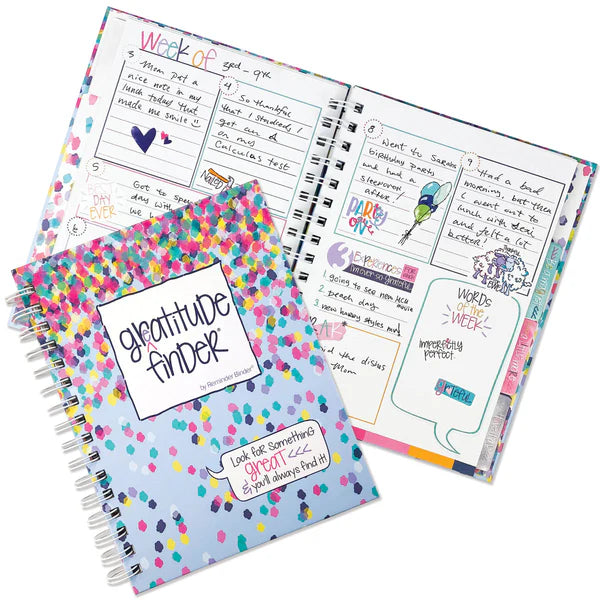 Week of 3rd - 9th
3
Mom put a
nice note in my
lunch today that
made me smile
4
So thankful
that I studied! I
got an A
on my
Calculus test
Nailed it
5
DAY
EVER
Got to spe
day with
6
8
Went to Sarahs
birthday party
and had a
sleepover
after!
PARTY
ON
9
Had a bad
morning, but then
I went out to
lunch with
and felt a lot
better!
3 EXPERIENCES
I'm over-so-grateful
FOR THIS
1. going to see new MCU
movie
2. beach day
3. new
did the dishes
Mom
WORDS
OF THE
WEEK
imperfectly
perfect.
grateful
gratitude
finder®
by Reminder Binder®
Look for something
great <<<
& you'll always find it!